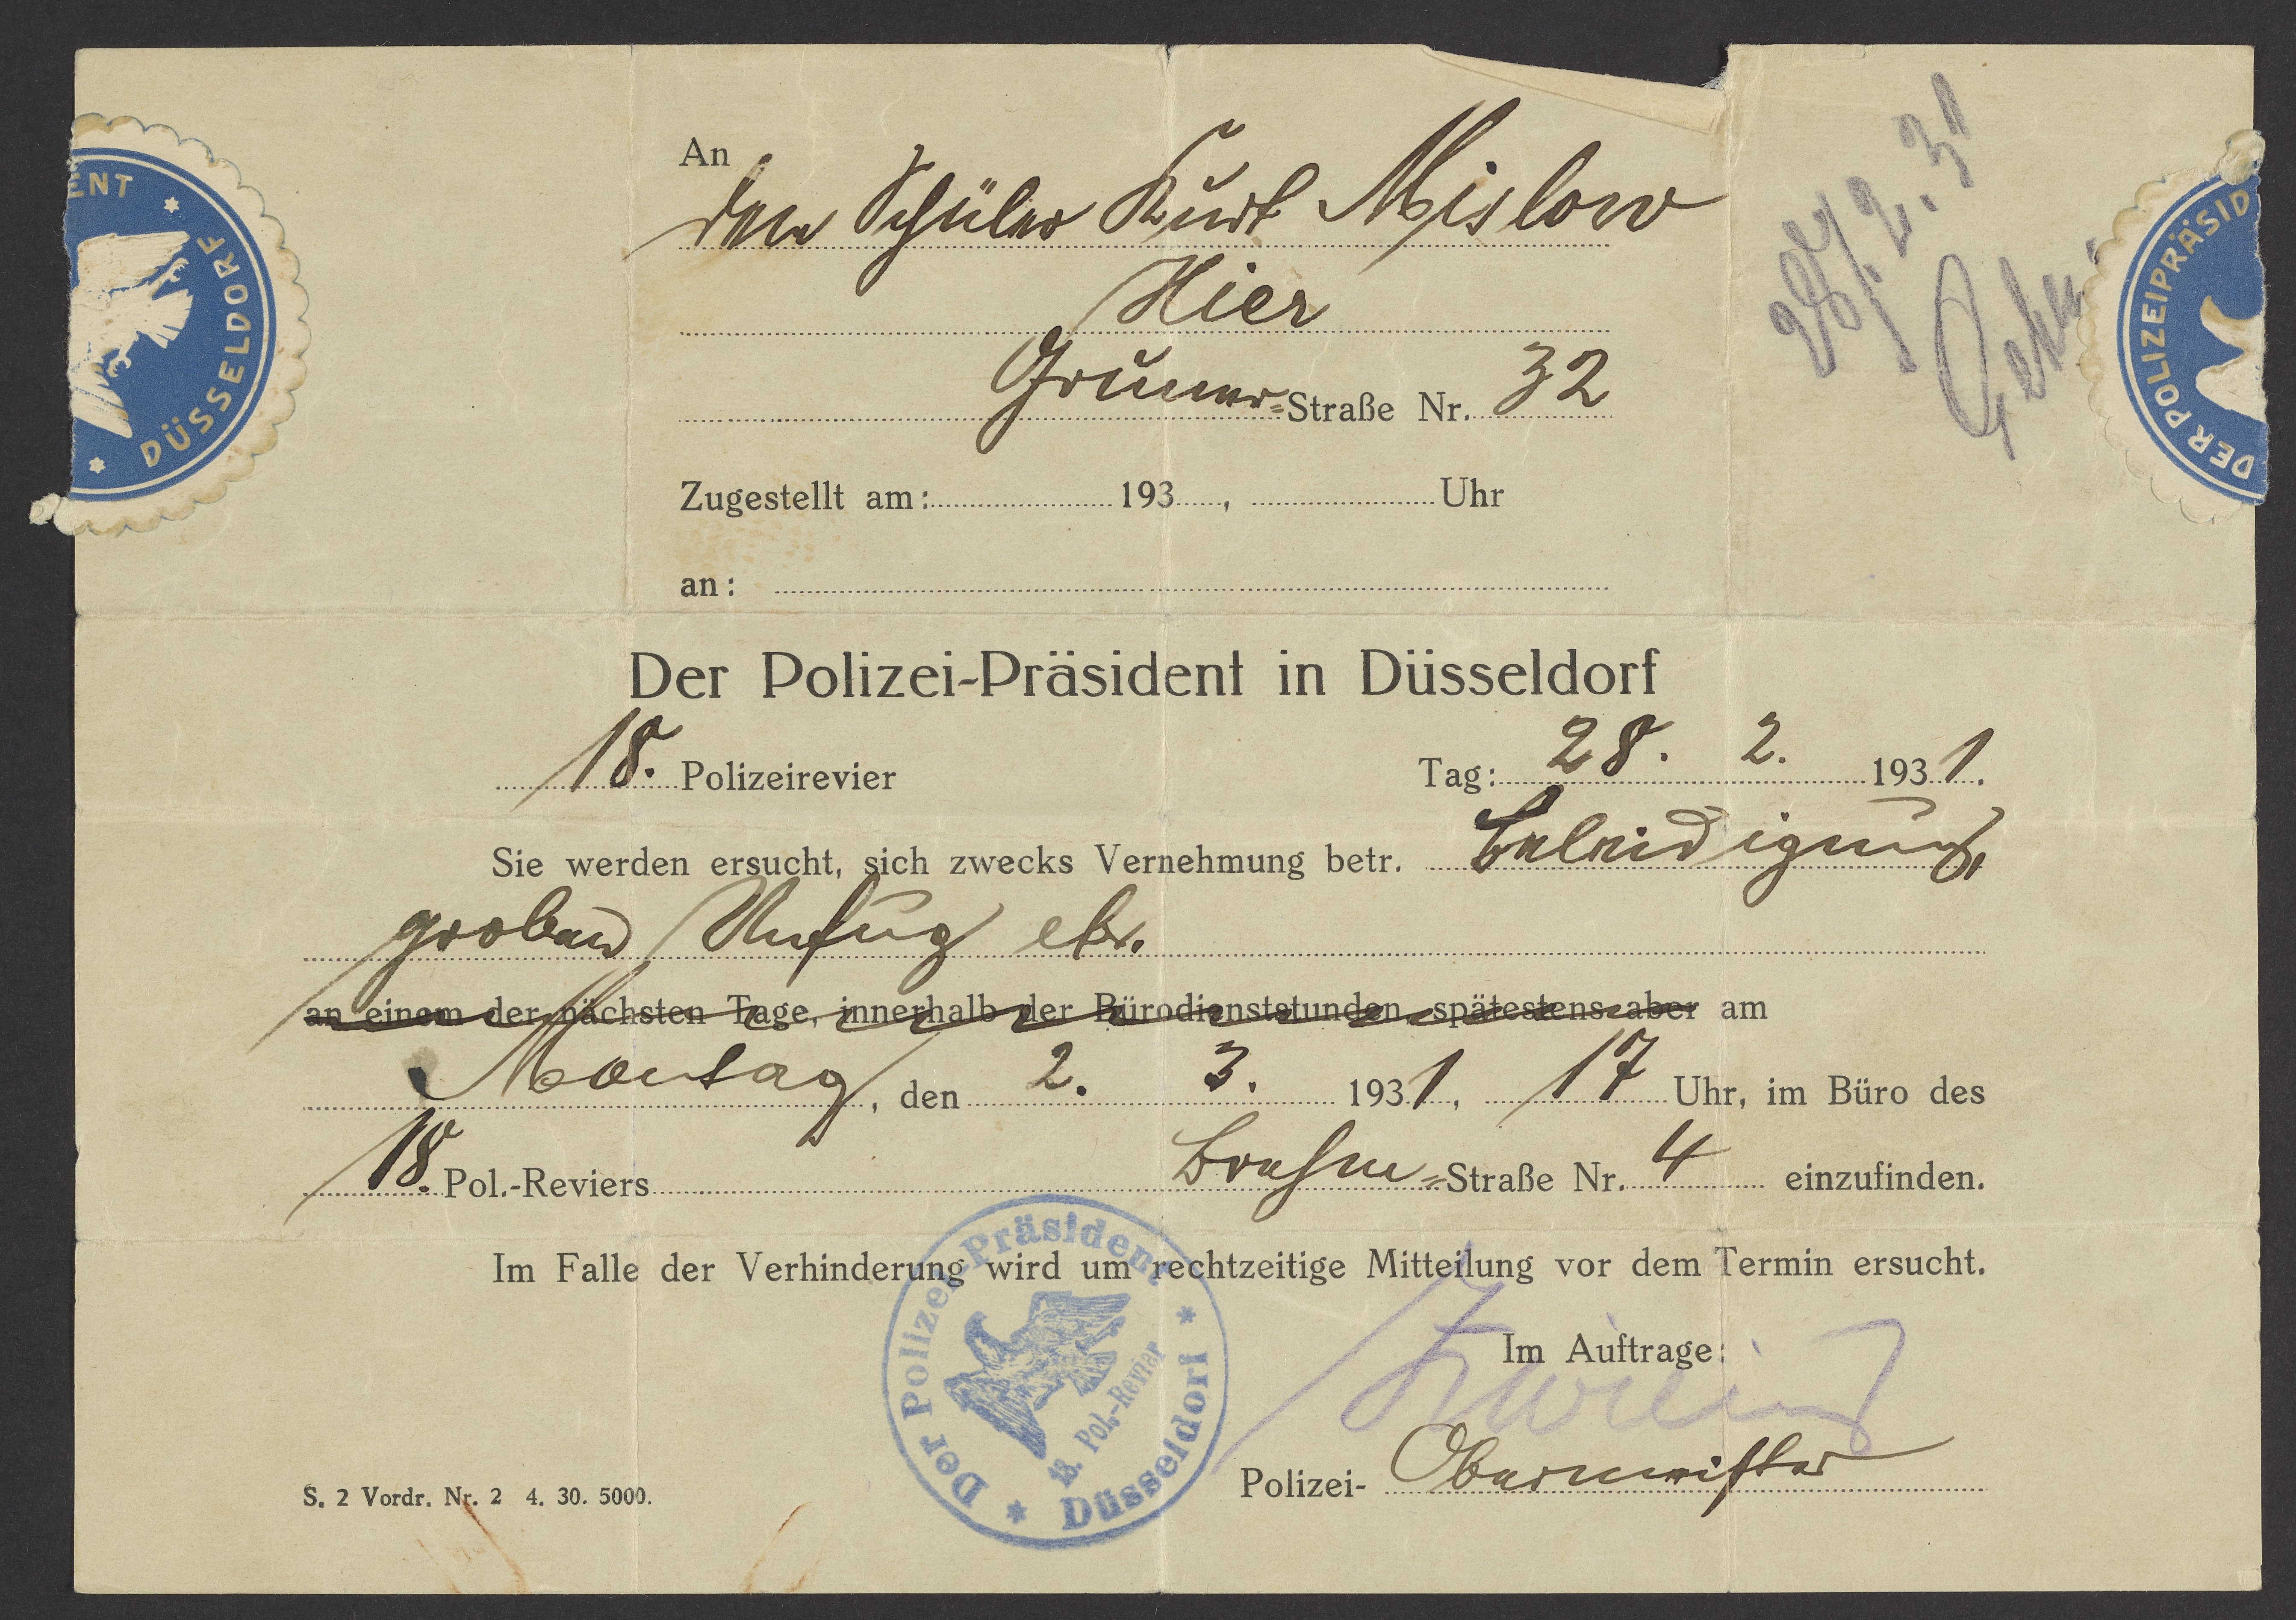 An
den Schüler Kurt Mislow
Hier
Gruner-Straße Nr. 32
Zugestellt am: 193 , Uhr
an:
28.2.31
ENT * DÜSSELDORF *
DER POLIZEIPRÄSID
Der Polizei-Präsident in Düsseldorf
18. Polizeirevier Tag: 28. 2. 1931.
Sie werden ersucht, sich zwecks Vernehmung betr. Beleidigung,
groben Unfug etc.
an einem der nächsten Tage, innerhalb der Bürodienststunden, spätestens aber am
Montag, den 2. 3. 1931, 17 Uhr, im Büro des
18. Pol.-Reviers Brehm-Straße Nr. 4 einzufinden.
Im Falle der Verhinderung wird um rechtzeitige Mitteilung vor dem Termin ersucht.
Im Auftrage:
Polizei- Obermeister
Der Polizei-Präsident * Düsseldorf *
18. Pol.-Revier
S. 2 Vordr. Nr. 2 4. 30. 5000.